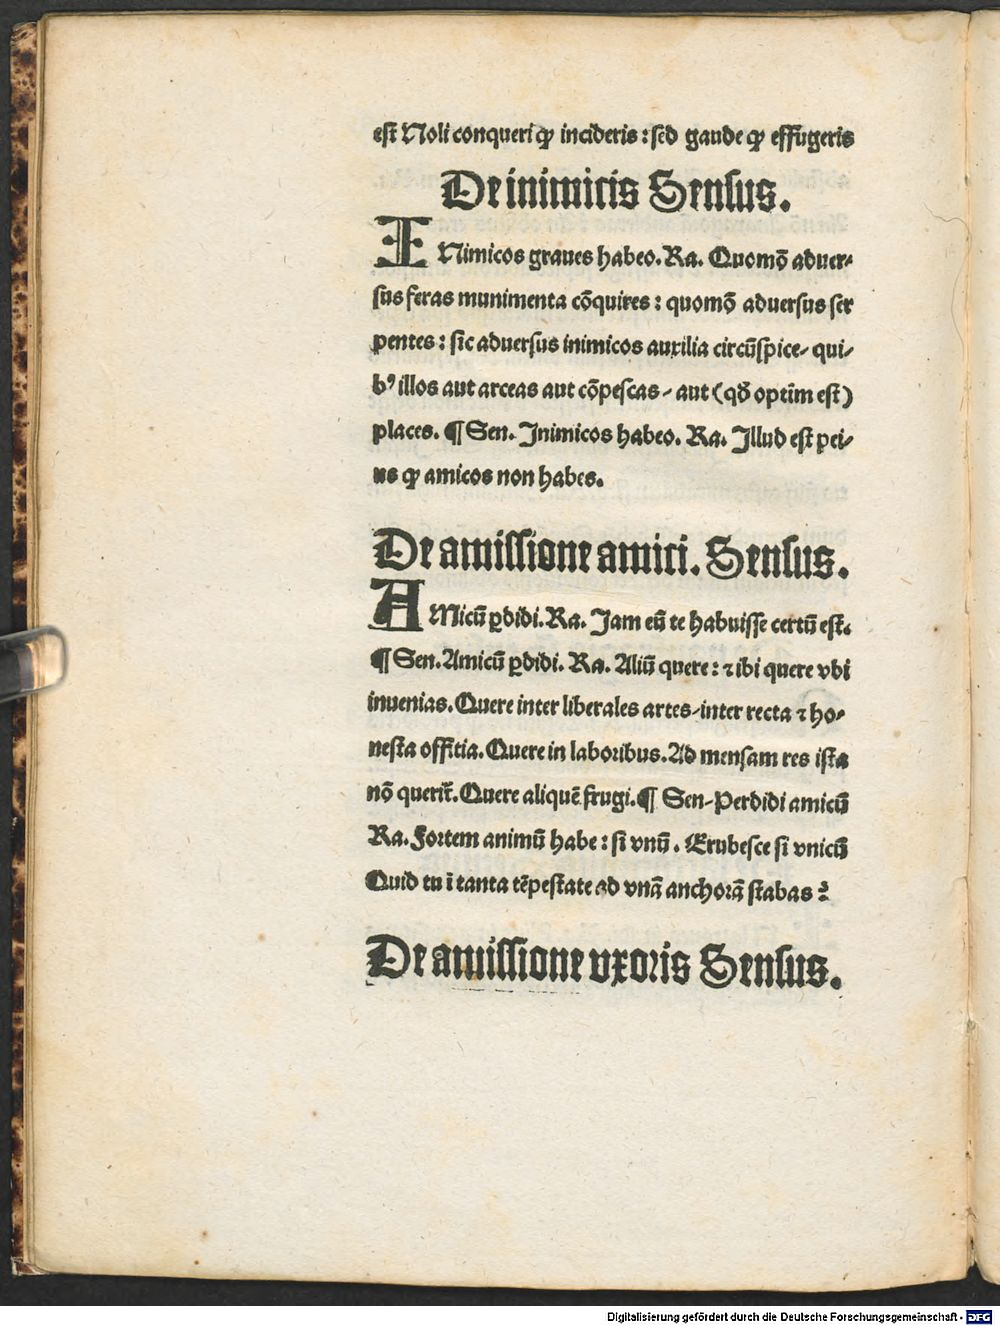 est Noli conqueri ꝙ incideris : sed gaude ꝙ effugeris
De inimicis Sensus.
INimicos graues habeo. Ra. Quomō aduer⸗
sus feras munimenta cōquires : quomō aduersus ser
pentes : sic aduersus inimicos auxilia circūspice / qui⸗
bꝰ illos aut arceas aut cōpescas / aut (qđ optim̄ est)
places. ¶ Sen. Inimicos habeo. Ra. Illud est pei⸗
us ꝙ amicos non habes.
De amissione amici. Sensus.
AMicū ꝑdidi. Ra. Jam eū te habuisse certū est.
¶ Sen. Amicū ꝑdidi. Ra. Aliū quere : ⁊ ibi quere vbi
inuenias. Quere inter liberales artes / inter recta ⁊ ho⸗
nesta offitia. Quere in laboribus. Ad mensam res ista
nō querit᷑. Quere aliquē frugi. ¶ Sen. Perdidi amicū
Ra. Fortem animū habe : si vnū. Erubesce si vnicū
Quid tu ī tanta tēpestate ad vnā anchorā stabas?
De amissione vxoris Sensus.
Digitalisierung gefördert durch die Deutsche Forschungsgemeinschaft - DFG